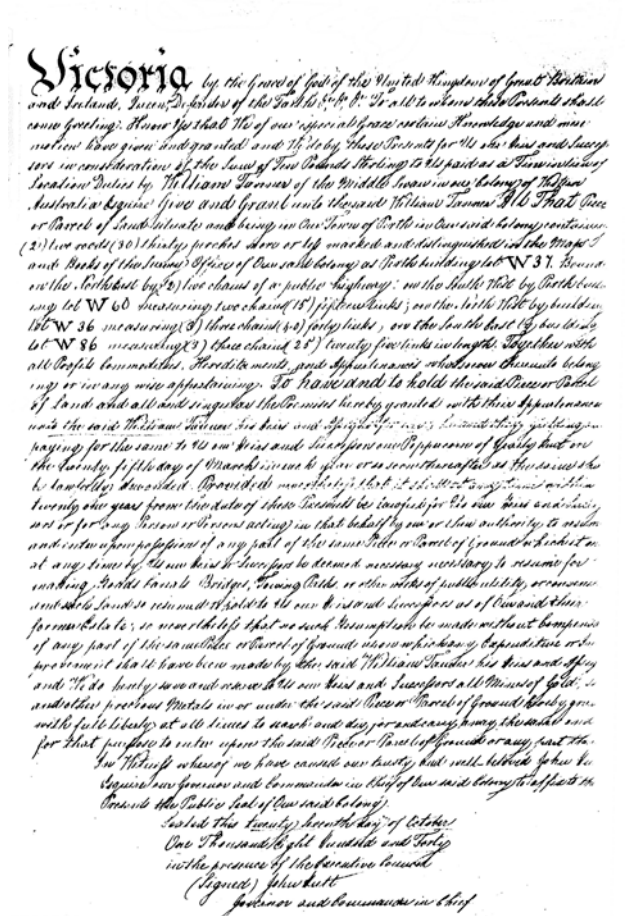 Victoria by the Grace of God of the United Kingdom of Great Britain
and Ireland, Queen, Defender of the Faith &c &c &c To all to whom these Presents shall
come Greeting: Know Ye that We of our especial Grace certain Knowledge and mere
motion have given and granted and We do by these Presents for Us our Heirs and Succes
sors in consideration of the Sum of Ten Pounds Sterling to Us paid as a Fine in lieu of
Location Duties by William Tanner of the Middle Swan in our Colony of Western
Australia Esquire Give and Grant unto the said William Tanner All That Piece
or Parcel of Land situate and being in Our Town of Perth in Our said Colony containing
(2) two roods (30) thirty perches more or less marked and distinguished in the Maps
and Books of the Survey Office of Our said Colony as Perth building lot W 37. Bound
on the North East by (2) two chains of a public highway: on the South West by Perth buil
ing lot W 60 measuring two chains (15) fifteen links; on the North West by building
lot W 36 measuring (3) three chains (40) forty links, on the South East by building
lot W 86 measuring (3) three chains 25) twenty five links in length. Together with
all Profits Commodities, Hereditaments, and Appurtenances whatsoever thereunto belong
ing or in any wise appertaining. To have and to hold the said Piece or Parcel
of Land and all and singular the Premises hereby granted with their Appurtenances
unto the said William Tanner his Heirs and Assigns for ever; yielding
paying for the same to Us our Heirs and Successors one Peppercorn of Yearly Rent on
the Twenty fifth day of March in each year or so soon thereafter as the same sha
be lawfully demanded. Provided nevertheless that it shall at any time within
twenty one years from the date of these Presents be lawful for Us our Heirs and Succes
sors or for any Person or Persons acting in that behalf by our or their authority to resume
and enter upon possession of any part of the same Piece or Parcel of Ground which it
at any time by Us our Heirs or Successors be deemed necessary necessary to resume for
making Roads Canals Bridges, Towing Paths, or other works of public utility, or convenie
and such Land so resumed to hold to Us our Heirs and Successors as of Our and their
former Estate; so nevertheless that no such Resumption be made without Compensa
of any part of the same Piece or Parcel of Ground upon which any Expenditure or Im
provement shall have been made by the said William Tanner his Heirs and Assig
and We do hereby save and reserve to Us our Heirs and Successors all Mines of Gold,
and other precious Metals in or under the said Piece or Parcel of Ground hereby gra
with full liberty at all times to search and dig, for and carry away the same and
for that purpose to enter upon the said Piece or Parcel of Ground or any part the
In Witness whereof we have caused our trusty and well-beloved John Hu
Esquire our Governor and Commander in Chief of Our said Colony to affix to the
Presents the Public Seal of Our said Colony.
Sealed this twenty seventh day of October
One Thousand Eight Hundred and Forty
in the presence of the Executive Council
(Signed) John Hutt
Governor and Commander in Chief